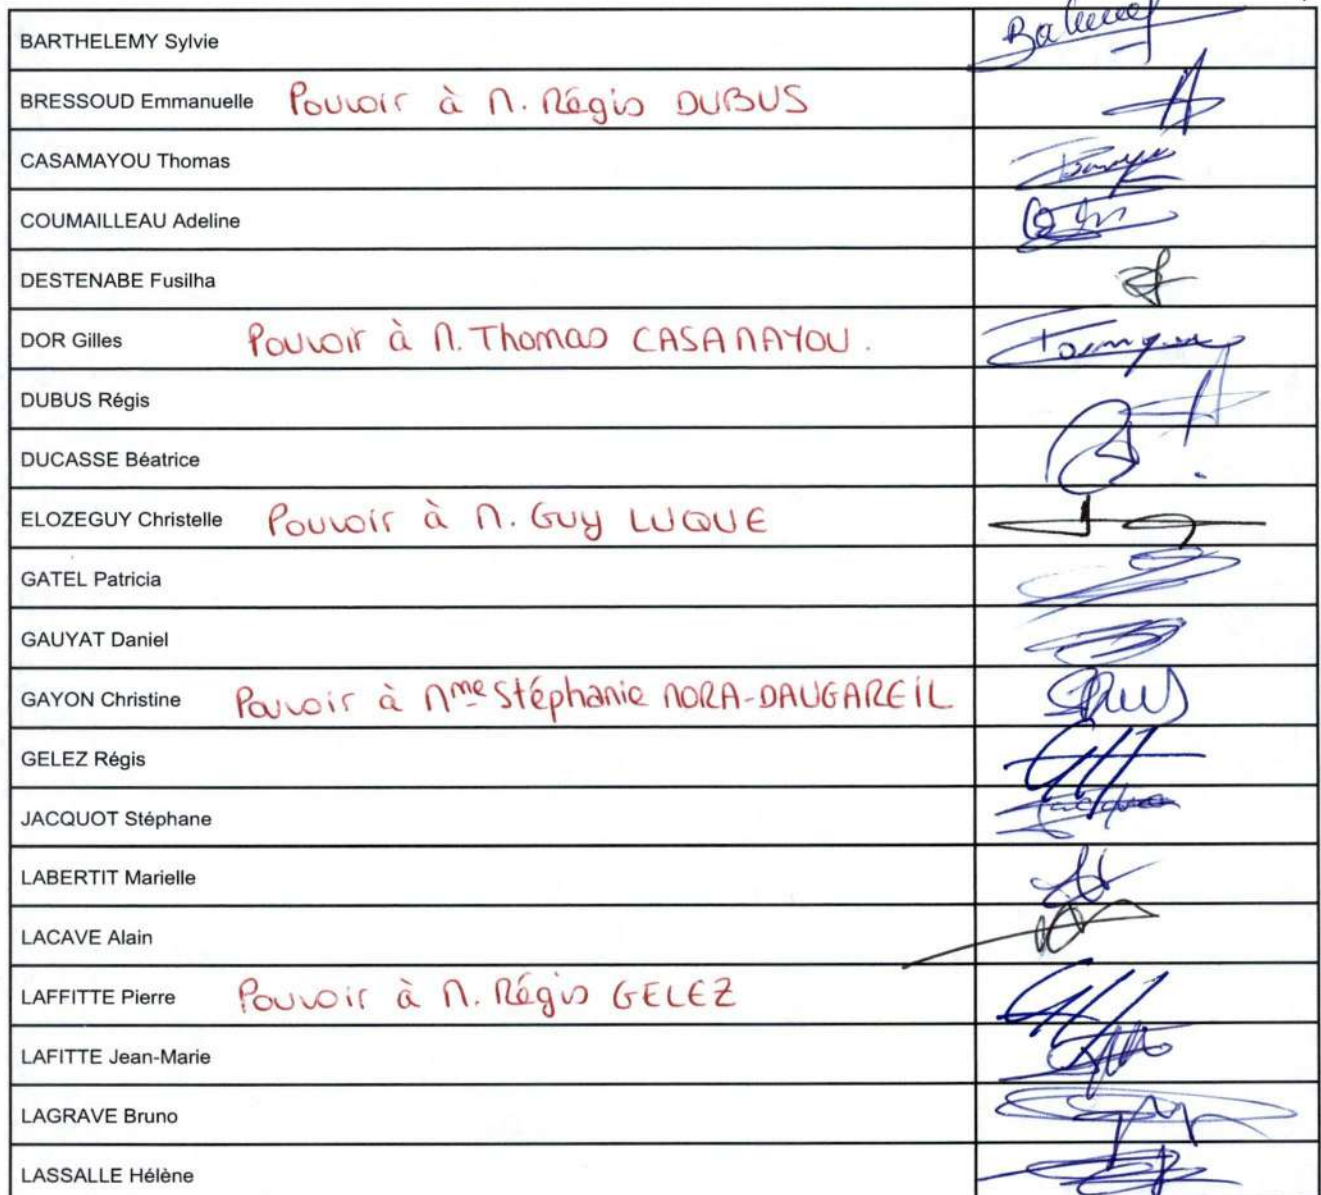 BARTHELEMY Sylvie
BRESSOUD Emmanuelle Pouvoir à M. Régis DUBUS
CASAMAYOU Thomas
COUMAILLEAU Adeline
DESTENABE Fusilha
DOR Gilles Pouvoir à M. Thomas CASAMAYOU.
DUBUS Régis
DUCASSE Béatrice
ELOZEGUY Christelle Pouvoir à M. Guy LUQUE
GATEL Patricia
GAUYAT Daniel
GAYON Christine Pouvoir à Mme Stéphanie MORA-DAUGAREIL
GELEZ Régis
JACQUOT Stéphane
LABERTIT Marielle
LACAVE Alain
LAFFITTE Pierre Pouvoir à M. Régis GELEZ
LAFITTE Jean-Marie
LAGRAVE Bruno
LASSALLE Hélène